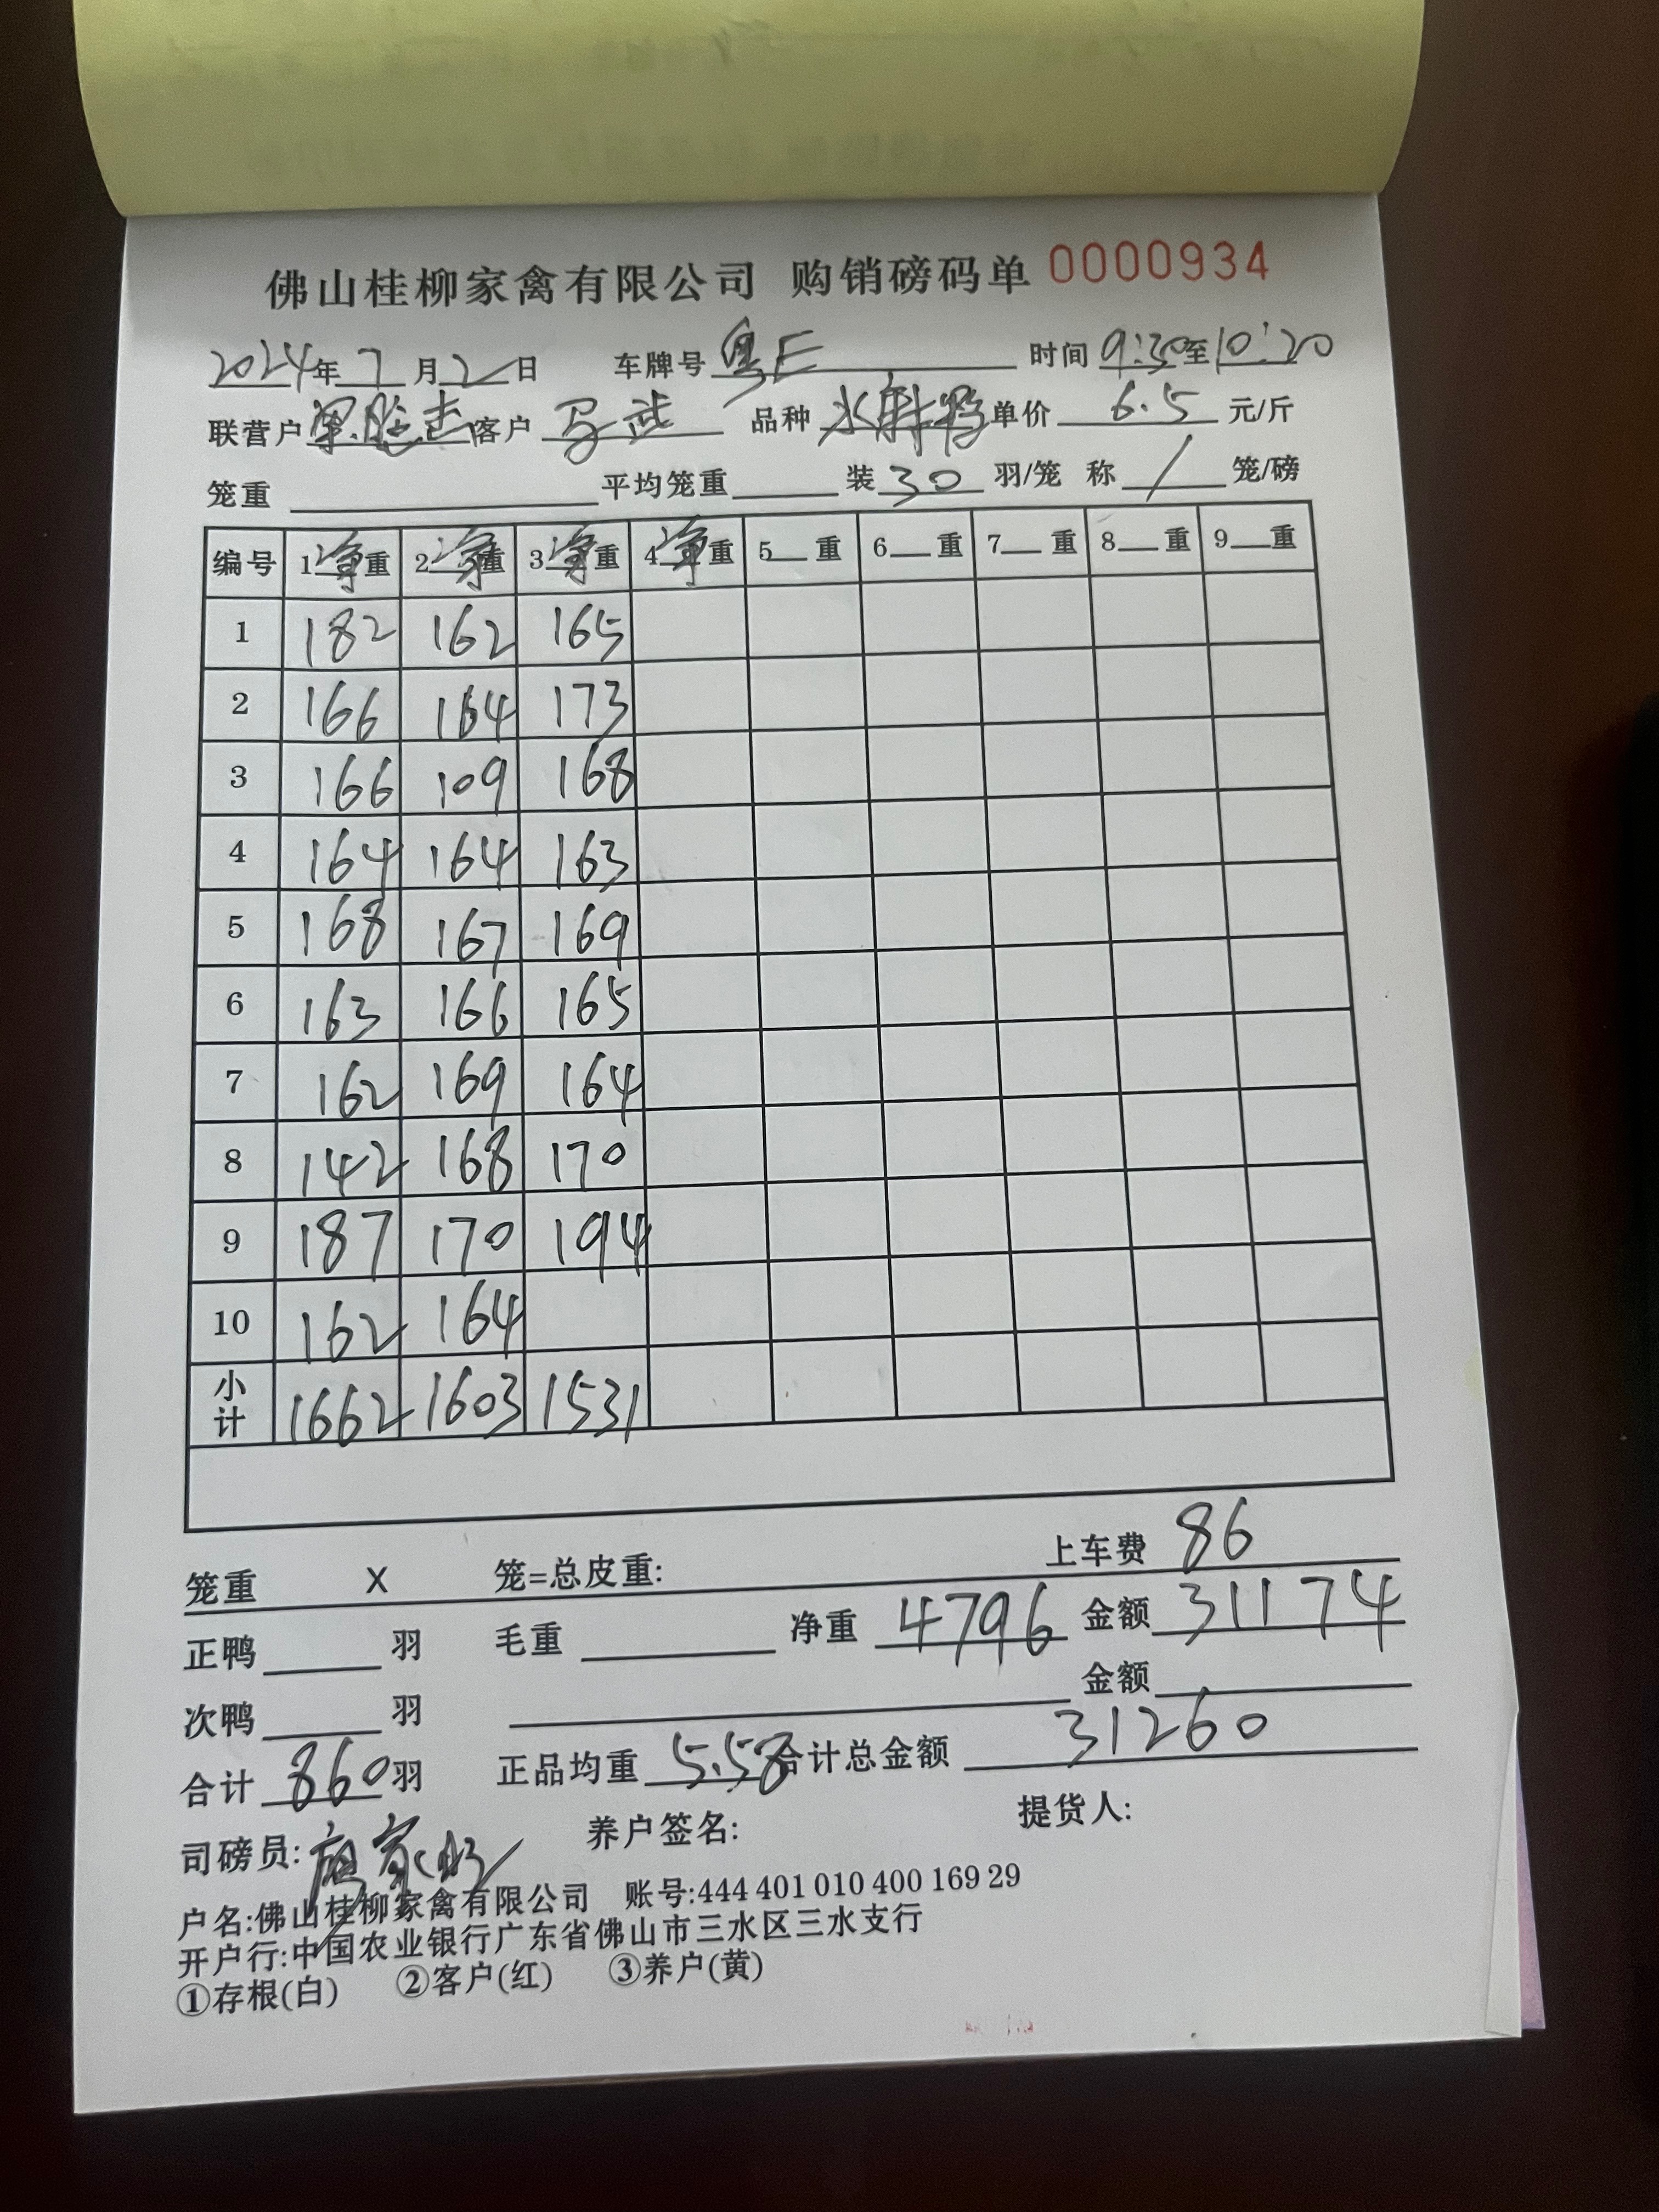 佛山桂柳家禽有限公司 购销磅码单 0000934
2024年7月2日 车牌号 粤E 时间 9:30至10:20
联营户 客户 马武 品种 水鸭 单价 6.5 元/斤
笼重 平均笼重 装 30 羽/笼 称 / 笼/磅
编号 1净重 2净重 3净重 4净重 5 重 6 重 7 重 8 重 9 重
1 182 162 165
2 166 164 173
3 166 109 168
4 164 164 163
5 168 167 169
6 163 166 165
7 162 169 164
8 142 168 170
9 187 170 194
10 162 164
小计 1662 1603 1531
笼重 X 笼=总皮重: 上车费 86
正鸭 羽 毛重 净重 4796 金额 31174
次鸭 羽 金额
合计 860 羽 正品均重 5.58 合计总金额 31260
司磅员: 养户签名: 提货人:
户名:佛山桂柳家禽有限公司 账号:444 401 010 400 169 29
开户行:中国农业银行广东省佛山市三水区三水支行
①存根(白) ②客户(红) ③养户(黄)